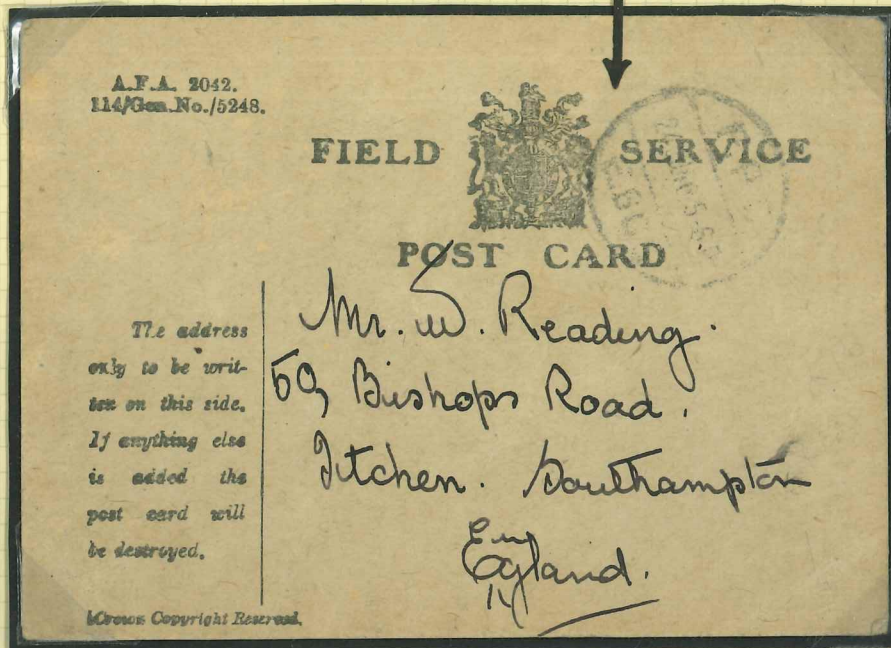 A.F.A. 2042.
114/Gen.No./5248.
FIELD SERVICE
POST CARD
The address
only to be writ-
ten on this side.
If anything else
is added the
post card will
be destroyed.
Mr. W. Reading.
59, Bishops Road.
Itchen. Southampton
England.
Crown Copyright Reserved.